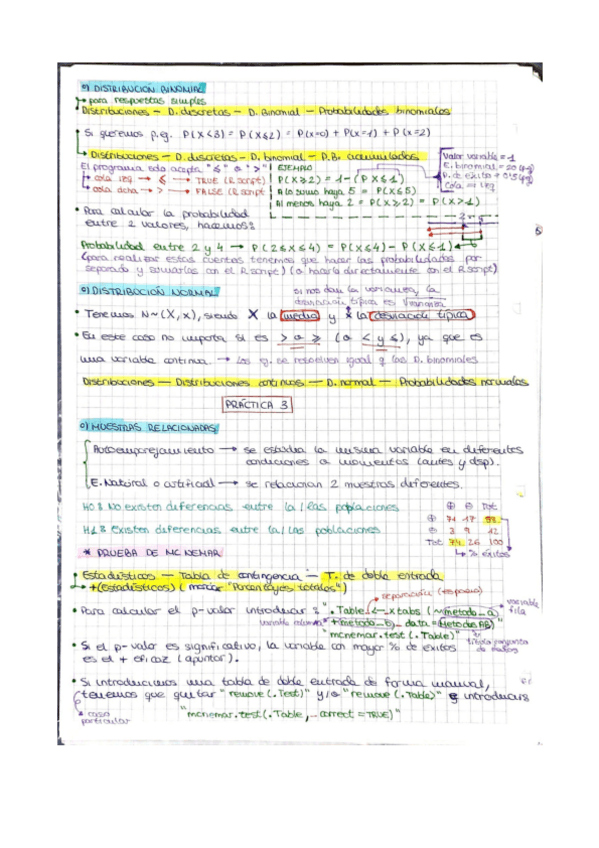 o) DISTRIBUCIÓN BINOMIAL
para respuestas simples
Distribuciones — D. discretas — D. Binomial — Probabilidades binomiales
Si queremos p.eg. P(X<3) = P(X≤2) = P(X=0) + P(X=1) + P(X=2)
Distribuciones — D. discretas — D. binomial — P.B. acumuladas
El programa solo acepta "≤" o ">"
cola izq. → ≤ → TRUE (R script)
cola dcha → > → FALSE (R script
EJEMPLO
P(X≥2) = 1-(P X≤1)
A lo sumo haya 5 = P(X≤5)
Al menos haya 2 = P(X≥2) = P(X>1)
Valor variable = 1
E. binomial = 20
P. de éxito = 0'5
Cola = izq
• Para calcular la probabilidad
entre 2 valores, hacemos:
Probabilidad entre 2 y 4 → P(2≤X≤4) = P(X≤4) - P(X≤1)
(para realizar estas cuentas tenemos que hacer las probabilidades por
separado y sumarlas con el R script) (o hacerla directamente con el R script)
o) DISTRIBUCIÓN NORMAL
si nos dan la varianza, la
desviación típica es √varianza
• Tenemos N~(X, x), siendo X la media y x la desviación típica
• En este caso no importa si es > o ≥ (o < y ≤), ya que es
una variable continua. → los ej. se resuelven igual q las D. binomiales
Distribuciones — Distribuciones continuas — D. normal — Probabilidades normales
PRÁCTICA 3
o) MUESTRAS RELACIONADAS
Autoemparejamiento → se estudia la misma variable en diferentes
condiciones o momentos (antes y dsp).
E. Natural o artificial → se relacionan 2 muestras diferentes.
H0: No existen diferencias entre la/las poblaciones
H1: Existen diferencias entre la/las poblaciones
⊕ ⊖ Tot
⊕ 71 17 88
⊖ 3 9 12
Tot 74 26 100
% éxitos
* PRUEBA DE MC NEMAR
Estadísticos — Tabla de contingencia — T. de doble entrada
+(Estadísticos) (marcar "Porcentajes totales")
separación (espacio)
• Para calcular el p-valor introducir: ".Table <- xtabs (~metodo_a
variable fila
variable columna +metodo_b, data=MetodosAB)"
"mcnemar.test (.Table)"
título conjunto de datos
• Si el p-valor es significativo, la variable con mayor % de éxitos
es el + eficaz (apuntar).
• Si introducimos una tabla de doble entrada de forma manual,
tenemos que quitar "remove (.Test)" y/o "remove (.Table)" e introducir
"mcnemar.test (.Table, correct = TRUE)"
* caso
particular